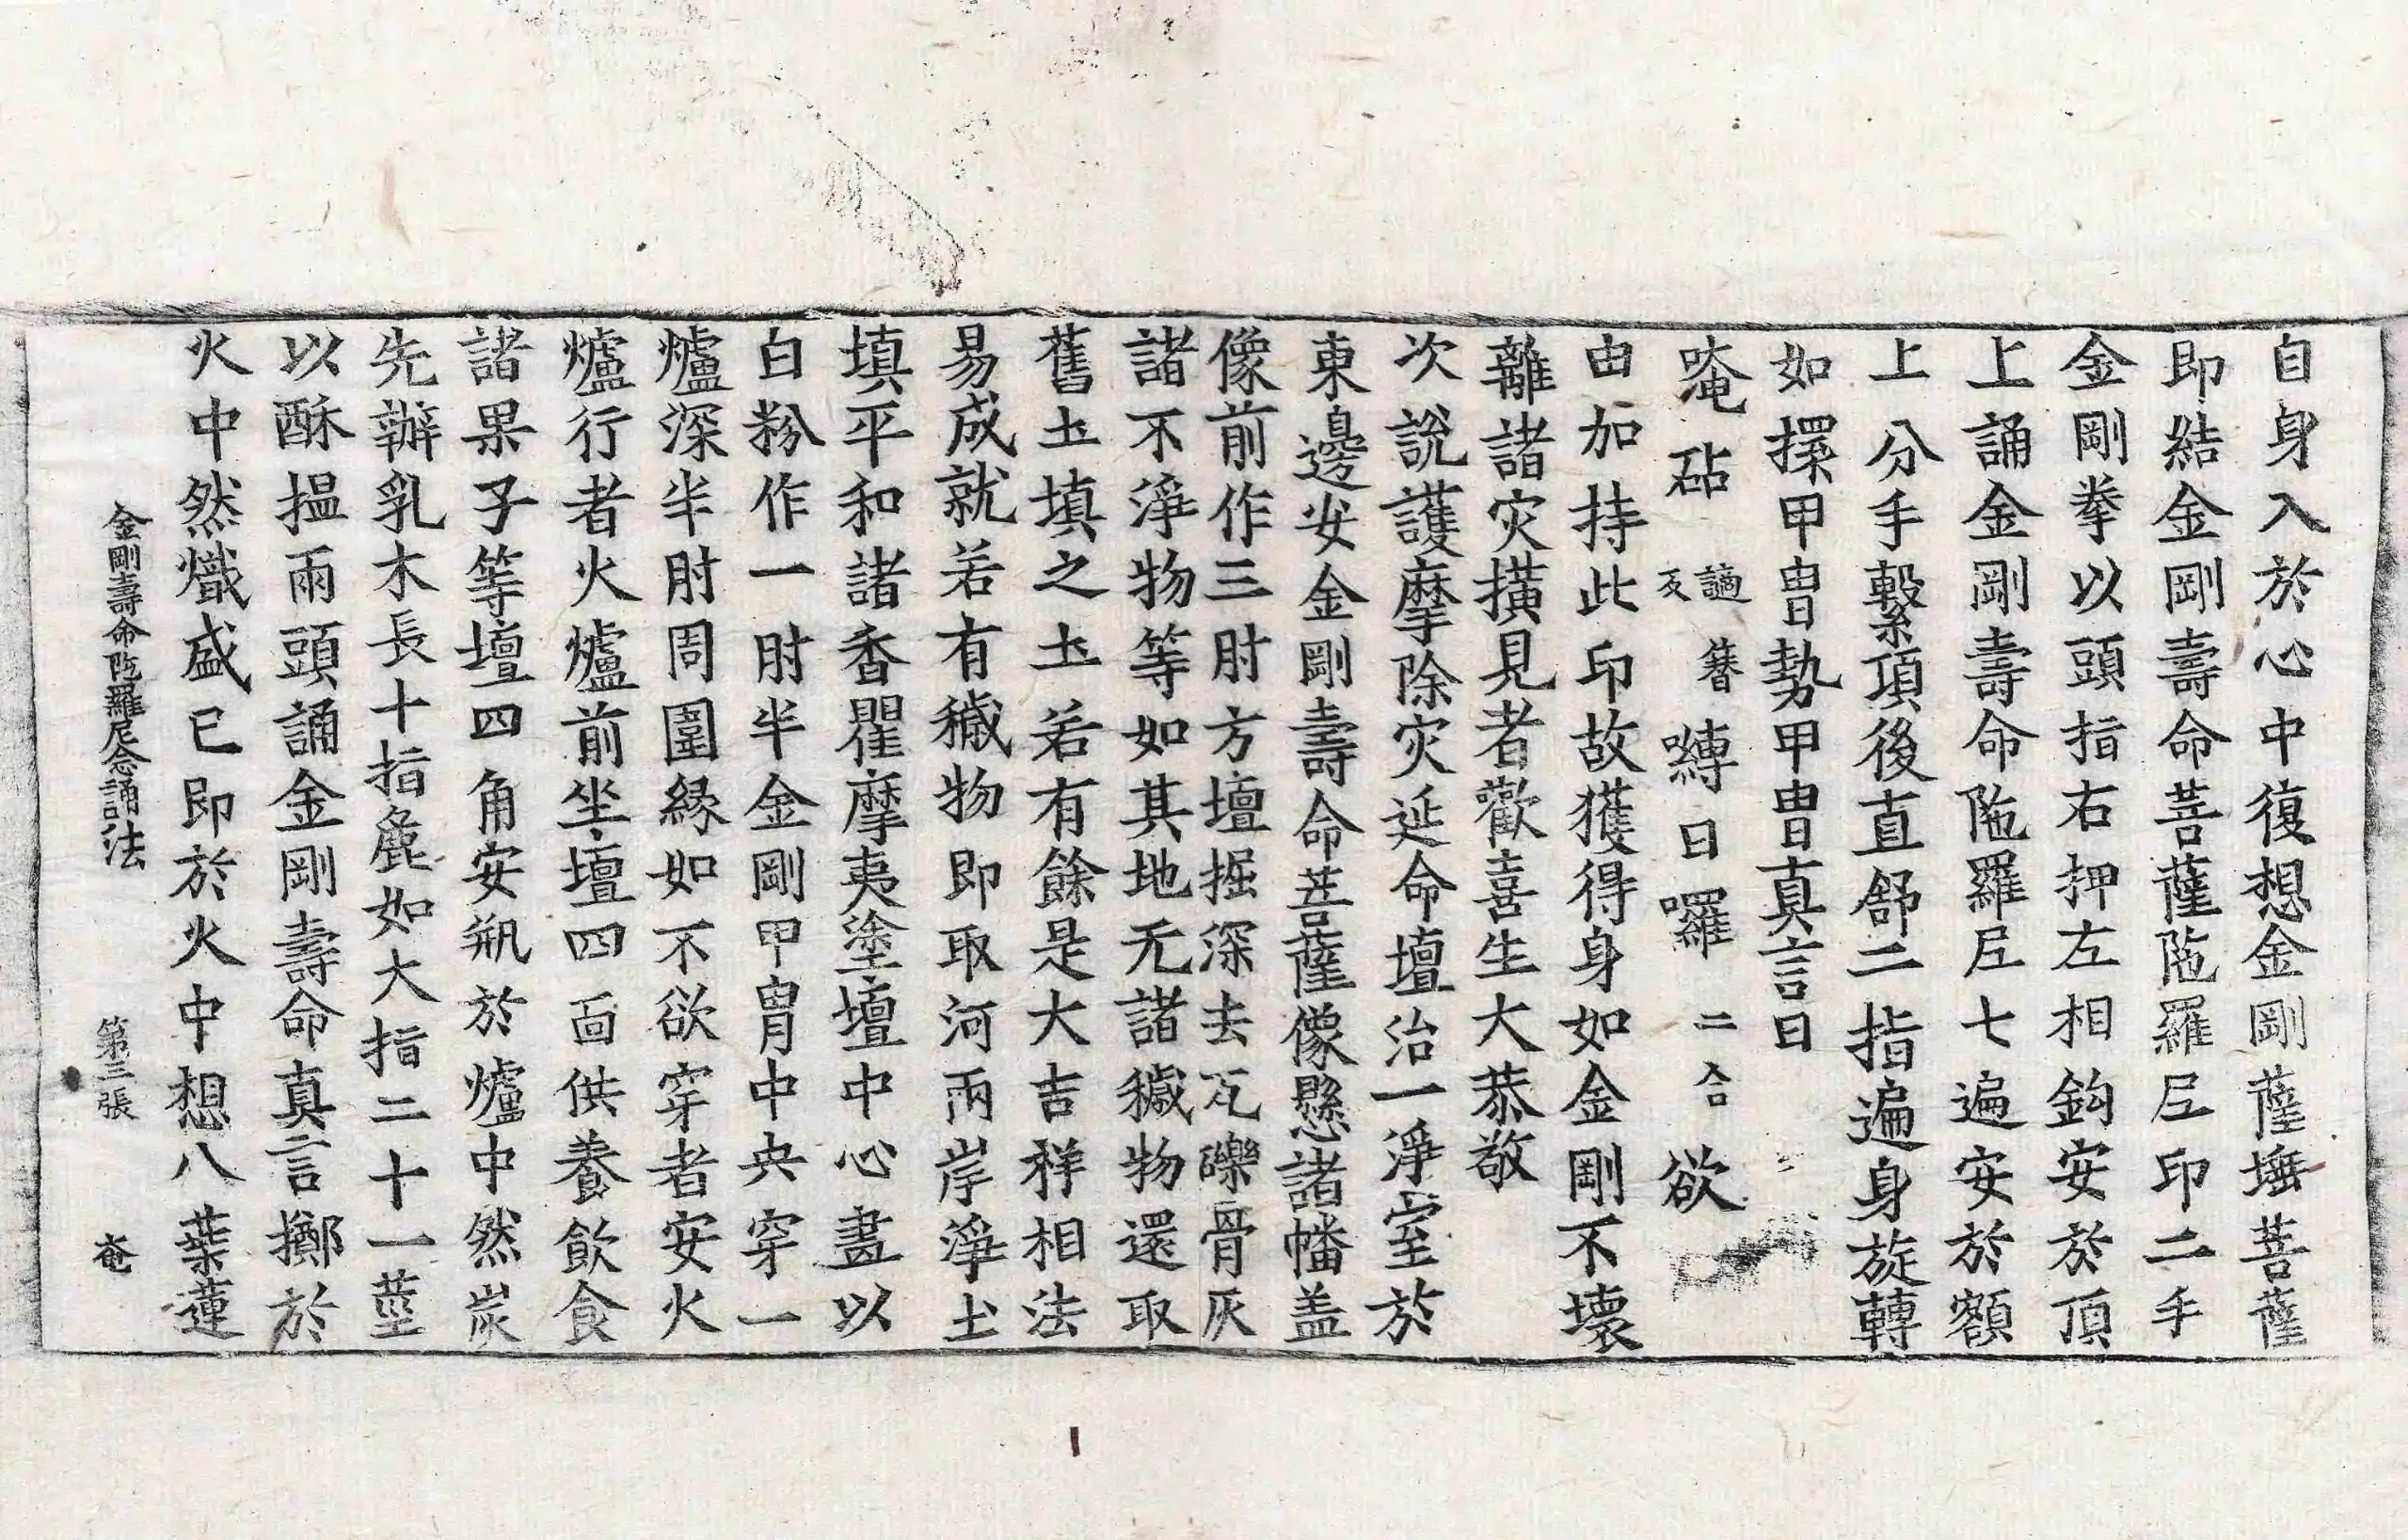 自身入於心中復想金剛薩埵菩薩
即結金剛壽命菩薩陁羅尼印二手
金剛拳以頭指右押左相鈎安於頂
上誦金剛壽命陁羅尼七遍安於額
上分手繫頂後直舒二指遍身旋轉
如擐甲冑勢甲冑真言曰
唵砧 謫簪反 嚩日囉 二合 欲
由加持此印故獲得身如金剛不壞
離諸灾橫見者歡喜生大恭敬
次說護摩除灾延命壇治一淨室於
東邊安金剛壽命菩薩像懸諸幡盖
像前作三肘方壇掘深去瓦礫骨灰
諸不淨物等如其地无諸穢物還取
舊圡填之圡若有餘是大吉祥相法
易成就若有穢物即取河兩岸淨圡
填平和諸香瞿摩夷塗壇中心畫以
白粉作一肘半金剛甲冑中央穿一
爐深半肘周圍緣如不欲穿者安火
爐行者火爐前坐壇四面供養飲食
諸果子等壇四角安瓶於爐中然炭
先辦乳木長十指麁如大指二十一莖
以酥搵兩頭誦金剛壽命真言擲於
火中然熾盛已即於火中想八葉蓮
金剛壽命陁羅尼念誦法 第三張 奄